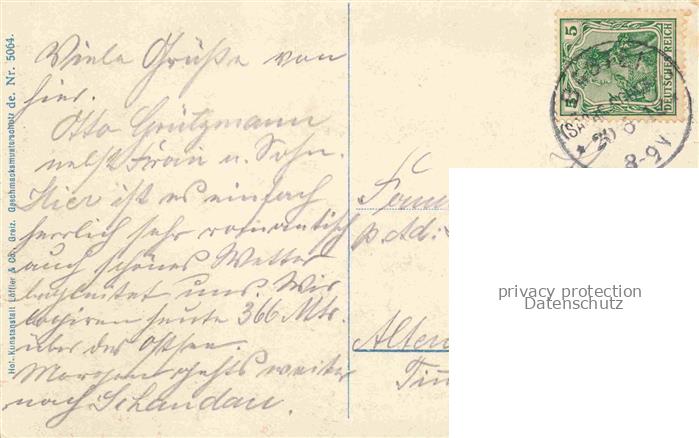 Viele Grüße von
hier.
Otto Grützmann
nebst Frau u. Sohn.
Hier ist es einfach
herrlich sehr romantisch
auch schönes Wetter
begleitet uns. Wir
logiren heute 366 Mtr.
über der Ostsee.
Morgen gehts weiter
nach Schandau.
Hof-Kunstanstalt Löffler & Co., Greiz. Geschmacksmusterschutz de. Nr. 5064.
5 5
DEUTSCHES REICH
(SÄCHS.
8-9V
p. Ad:
Alten
privacy protection
Datenschutz